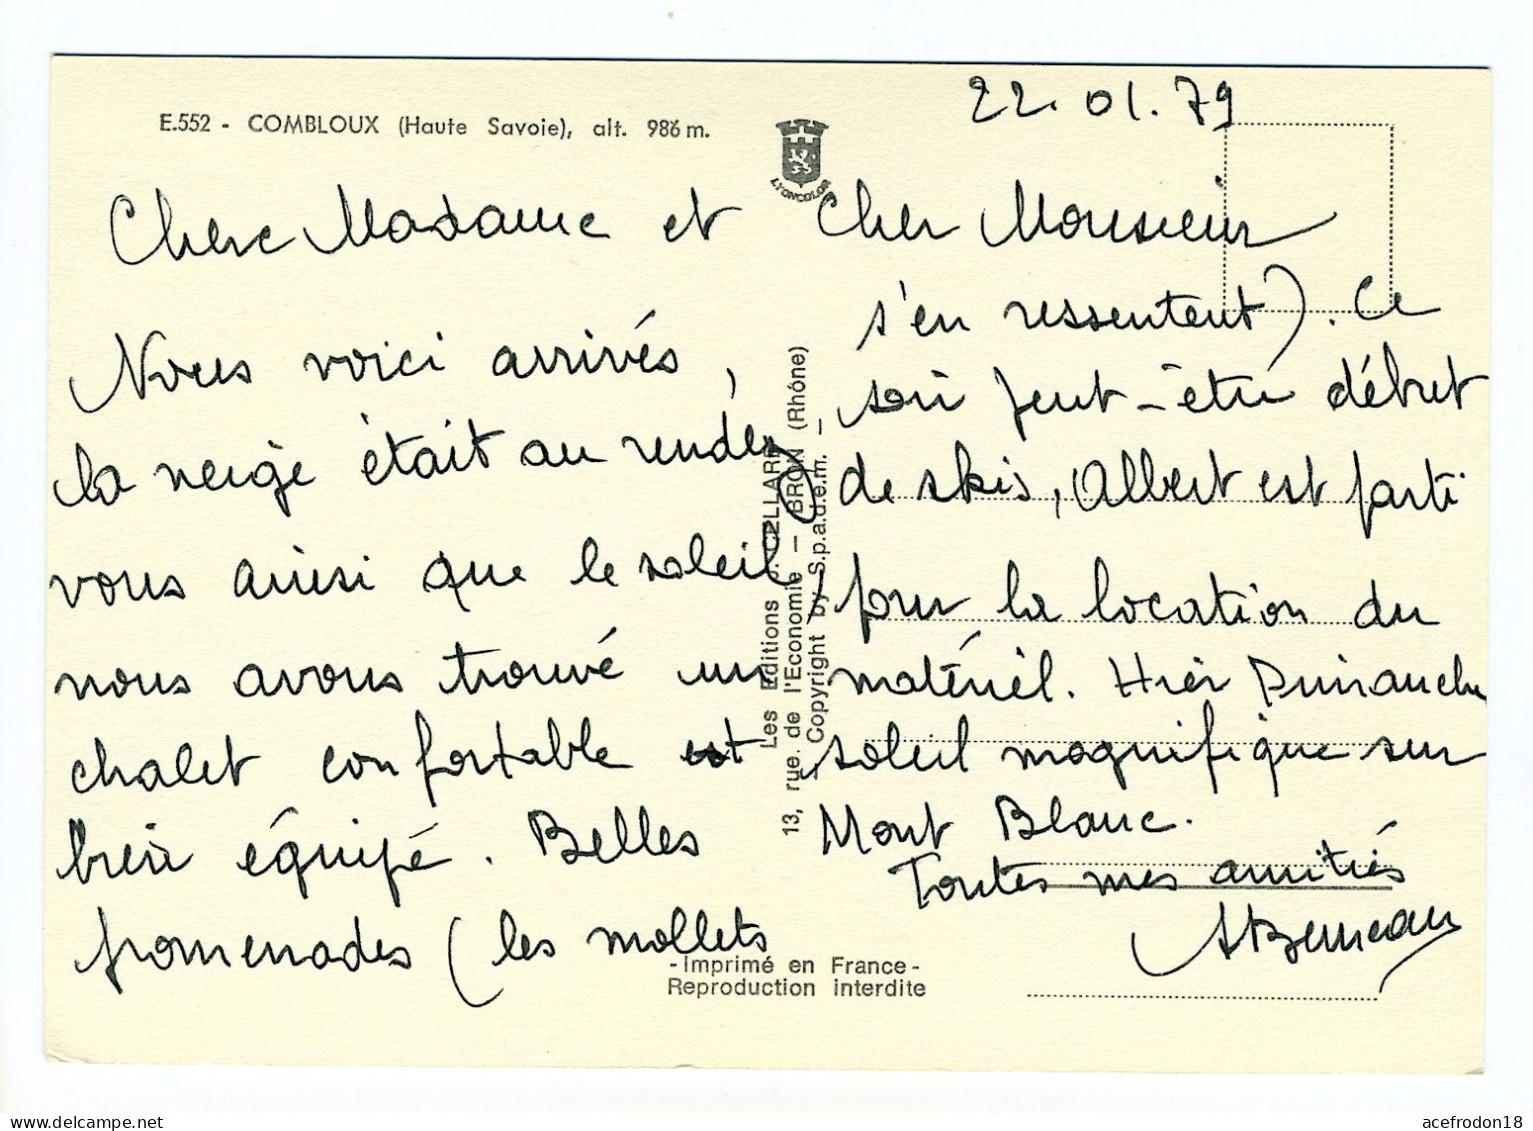 22.01.79
E.552 - COMBLOUX (Haute Savoie), alt. 986 m.
LYONCOLOR
Chère Madame et Cher Monsieur
Nous voici arrivés,
la neige était au rendez
vous ainsi que le soleil,
nous avons trouvé un
chalet confortable et
bien équipé. Belles
promenades (les mollets
s'en ressentent). Ce
soir peut-être début
de skis, Albert est parti
pour la location du
matériel. Hier Dimanche
soleil magnifique sur
Mont Blanc.
Toutes mes amitiés
Les Editions J. CELLARD
13, rue de l'Economie — BRON (Rhône)
— Copyright by S.p.a.d.e.m. —
- Imprimé en France -
Reproduction interdite
acefrodon18